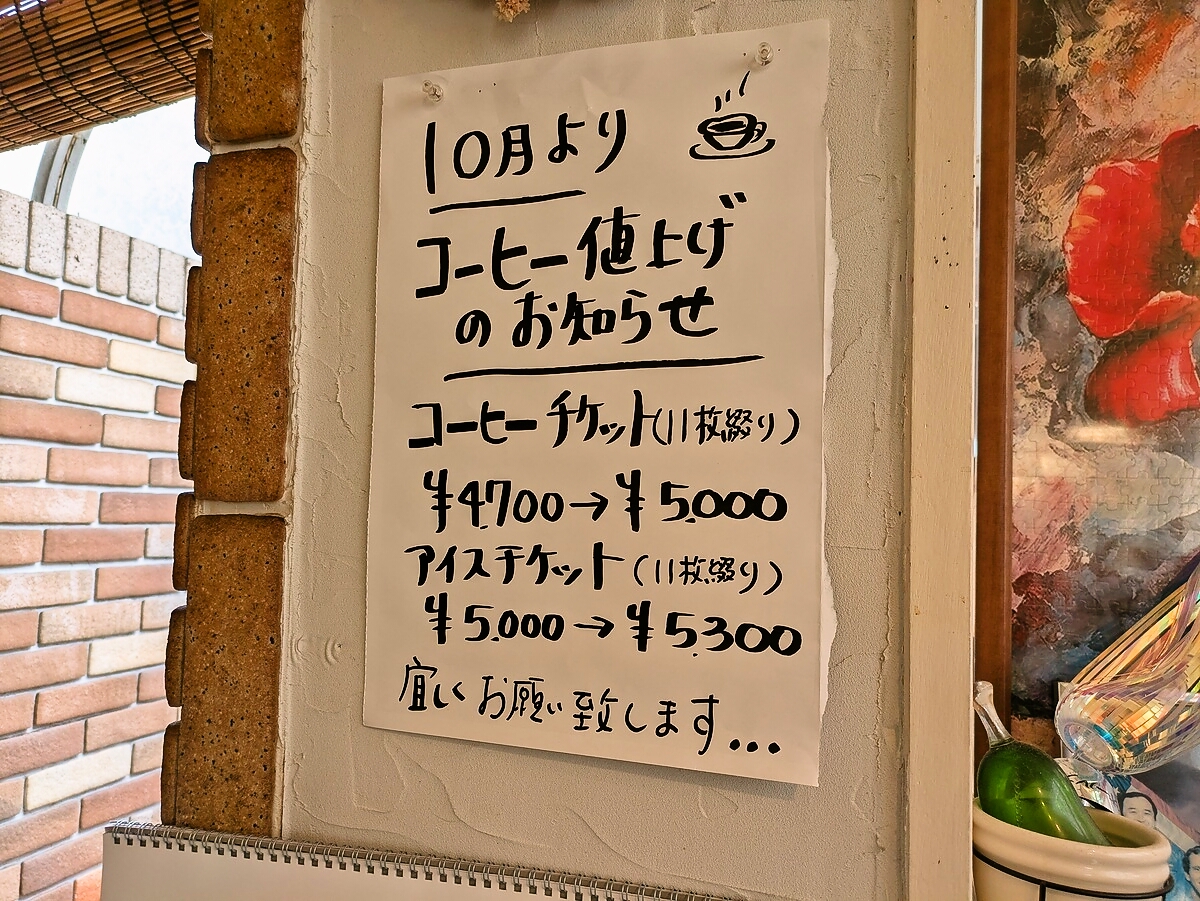 10月より
コーヒー値上げ
のお知らせ
コーヒーチケット(11枚綴り)
¥4,700→¥5,000
アイスチケット(11枚綴り)
¥5,000→¥5,300
宜しくお願い致します...